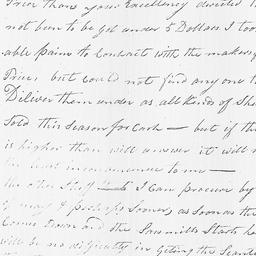 than your Excellency directed
not been to be got under 5 Dollars I too
able pains to Contract with the makers
Prices but could not find any one t
Diliver them under as all Kinds of Sho
Sold this Season for Cash — but if th
is higher than will answer it will n
the least inconvenience to me —
the other Stuff I Can procure by
may & perhaps Sooner as Soon as the
Comes Down and the Sawmills Starts
will be no dificulty in Geting the